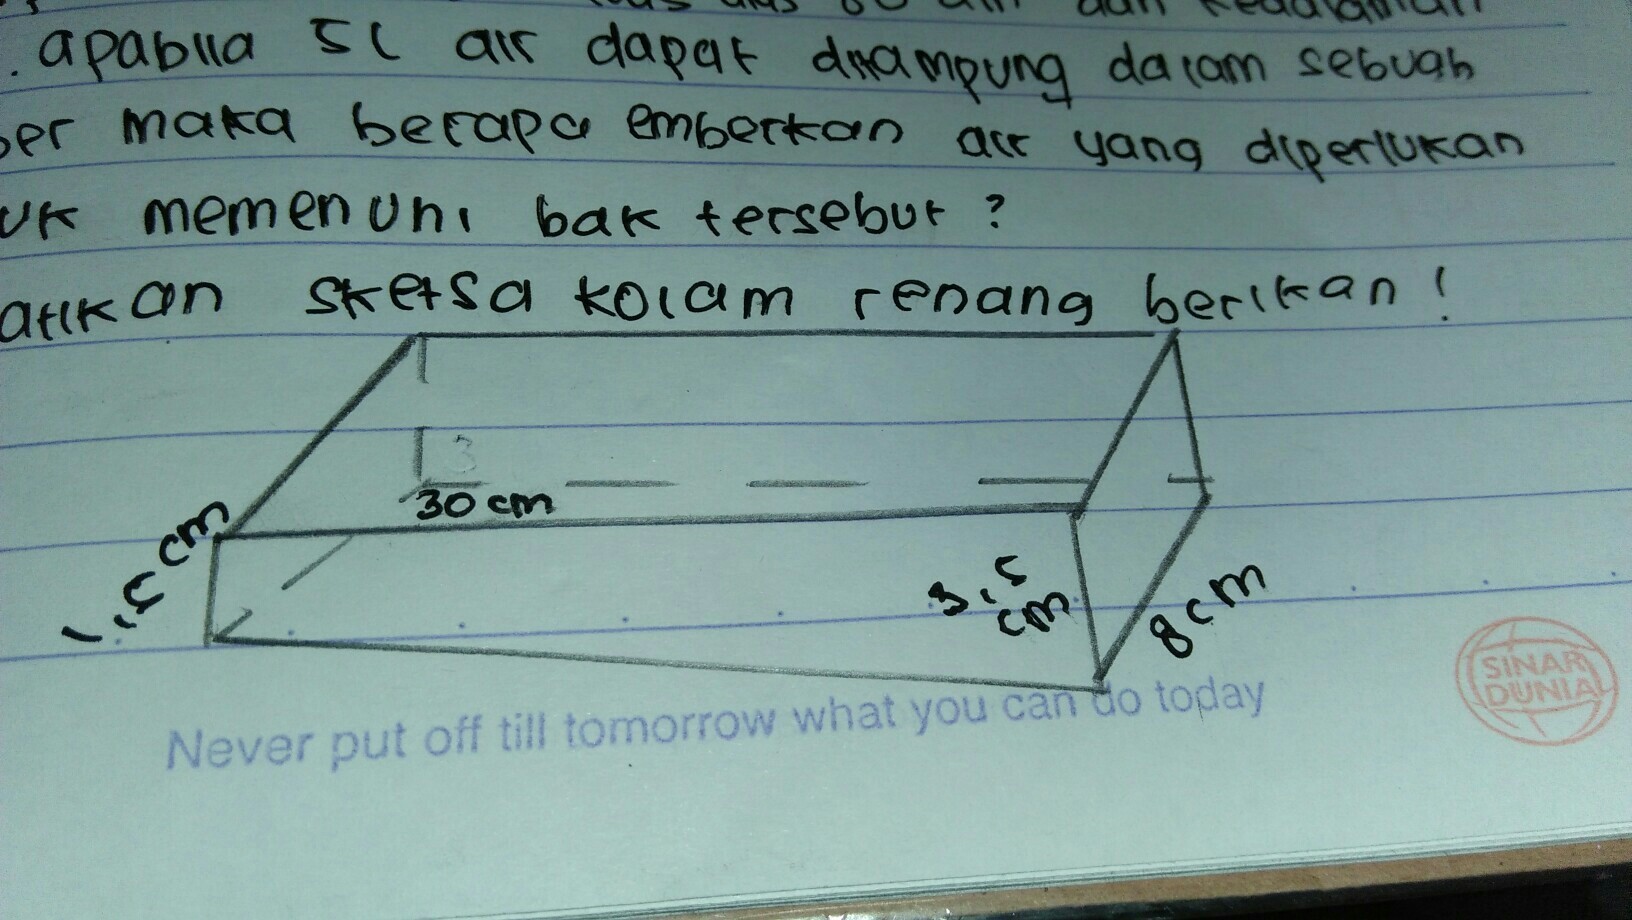 . apabila 5L air dapat ditampung dalam sebuah
ber maka berapa emberkan air yang diperlukan
uk memenuhi bak tersebut ?
atikan sketsa kolam renang berikan !
3
30 cm
1,5 cm
3,5 cm
8 cm
Never put off till tomorrow what you can do today
SINAR
DUNIA